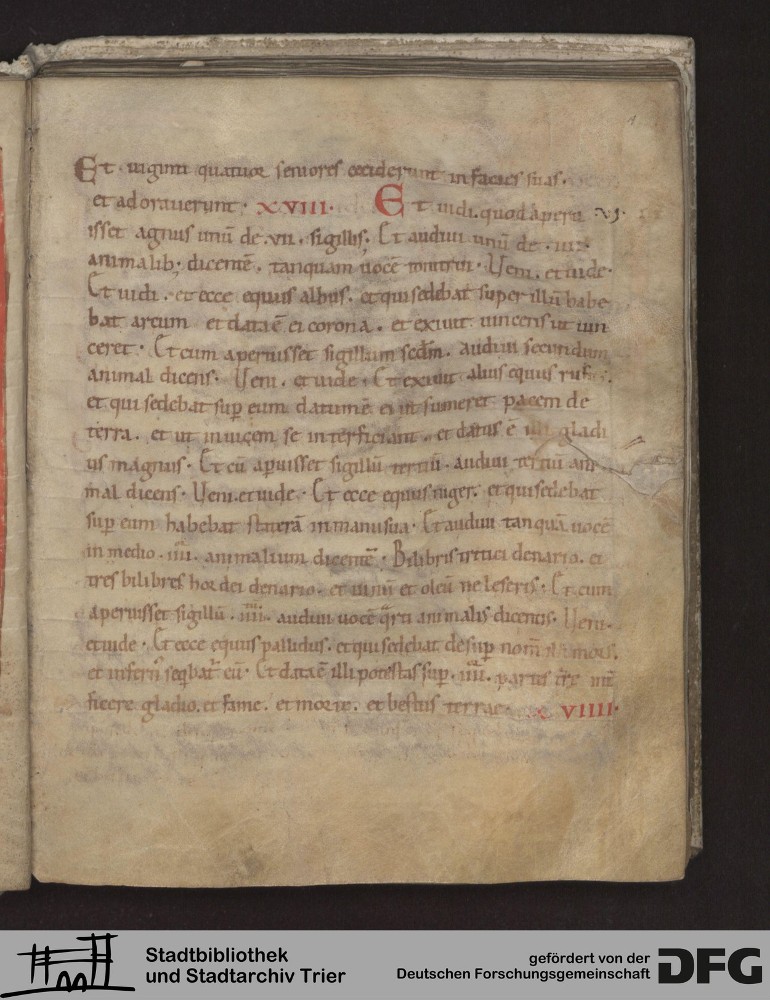 Et uiginti quatuor seniores ceciderunt in facies suas.
et adorauerunt. XVIII. Et uidi. quod aperu VJ.
isset agnus unū de .vii. sigillis. Et audiui unū de .iiii.
animalib; dicentē. tanquam uocē tonitrui. Ueni. et uide.
Et uidi. et ecce equus albus. et qui sedebat super illū habe
bat arcum et data ē ei corona. et exiuit uincens ut uin
ceret. Et cum aperuisset sigillum scd̄m. audiui secundum
animal dicens. Ueni. et uide. Et exiuit alius equus rufus.
et qui sedebat sup eum datum ē ei ut sumeret pacem de
terra. et ut inuicem se interficiant. et datus ē illi gladi
us magnus. Et cū apuisset sigillū tertiū. audiui tertiū ani
mal dicens. Ueni. et uide. Et ecce equus niger. et qui sedebat
sup eum habebat staterā in manu sua. Et audiui tanquā uocē
in medio .iiii. animalium dicentē. Bilibris tritici denario. et
tres bilibres hordei denario. et uinū et oleū ne leseris. Et cum
aperuisset sigillū .iiii. audiui uocē qrti animalis dicentis. Ueni.
et uide. Et ecce equus pallidus. et qui sedebat desup nom̄ illi mors.
et infern seqbat eū. Et data ē illi potestas sup .iiii. partes tr̄e int
ficere gladio. et fame. et morte. et bestiis terrae. XVIIII.
Stadtbibliothek
und Stadtarchiv Trier
gefördert von der
Deutschen Forschungsgemeinschaft
DFG